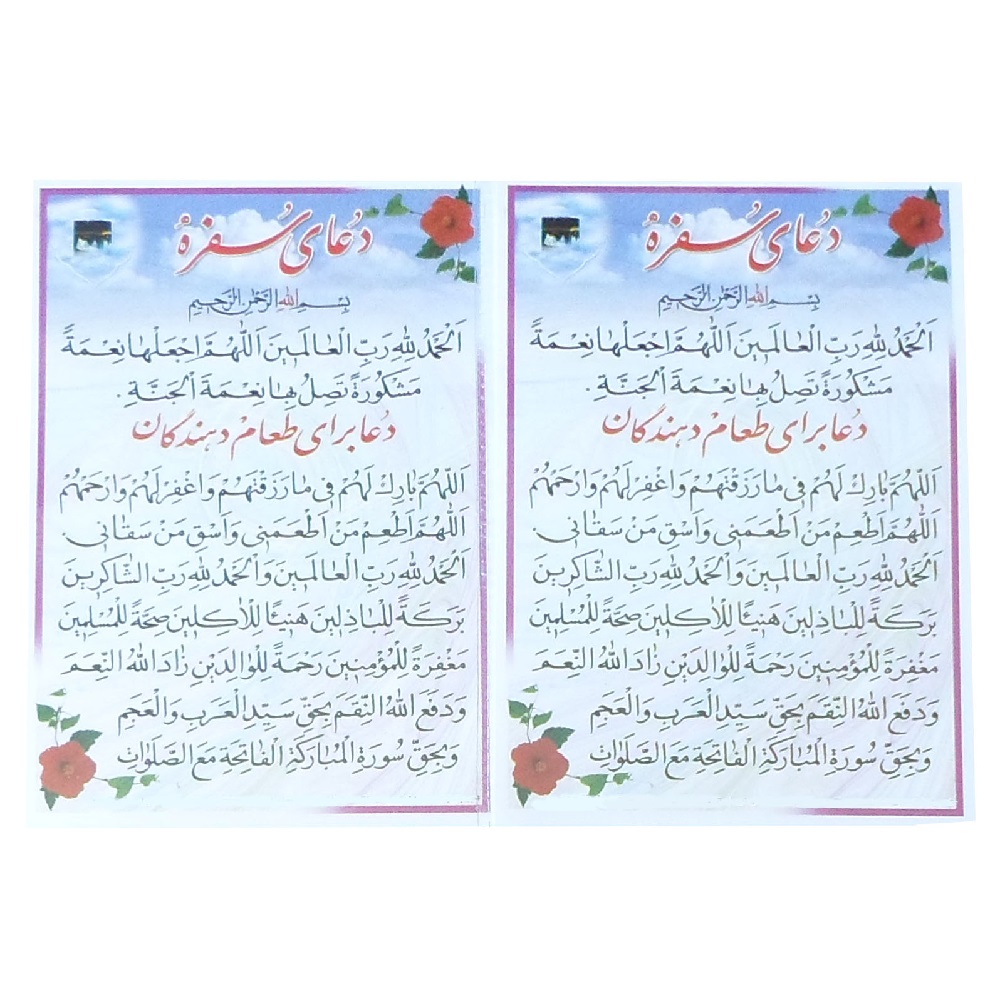 دُعای سُفرهٔ
بِسْمِ اللهِ الرَّحْمٰنِ الرَّحِيمِ
اَلْحَمْدُ لِلّٰهِ رَبِّ الْعٰالَمِينَ اَللّٰهُمَّ اجْعَلْهٰا نِعْمَةً
مَشْكُورَةً تَصِلُ بِهٰا نِعْمَةَ الْجَنَّةِ .
دُعا برای طعام دهندگان
اَللّٰهُمَّ بٰارِكْ لَهُمْ فِي مٰا رَزَقْتَهُمْ وَاغْفِرْ لَهُمْ وَارْحَمْهُمْ
اَللّٰهُمَّ اَطْعِمْ مَنْ اَطْعَمَنِي وَاَسْقِ مَنْ سَقٰانِي .
اَلْحَمْدُ لِلّٰهِ رَبِّ الْعٰالَمِينَ وَالْحَمْدُ لِلّٰهِ رَبِّ الشّٰاكِرِينَ
بَرَكَةً لِلْبٰاذِلِينَ هَنِيئًا لِلْاٰكِلِينَ صِحَّةً لِلْمُسْلِمِينَ
مَغْفِرَةً لِلْمُؤْمِنِينَ رَحْمَةً لِلْوٰالِدَيْنِ زٰادَ اللهُ النِّعَمَ
وَدَفَعَ اللهُ النِّقَمَ بِحَقِّ سَيِّدِ الْعَرَبِ وَالْعَجَمِ
وَبِحَقِّ سُورَةِ الْمُبٰارَكَةِ الْفٰاتِحَةِ مَعَ الصَّلَوٰاتِ
دُعای سُفرهٔ
بِسْمِ اللهِ الرَّحْمٰنِ الرَّحِيمِ
اَلْحَمْدُ لِلّٰهِ رَبِّ الْعٰالَمِينَ اَللّٰهُمَّ اجْعَلْهٰا نِعْمَةً
مَشْكُورَةً تَصِلُ بِهٰا نِعْمَةَ الْجَنَّةِ .
دُعا برای طعام دهندگان
اَللّٰهُمَّ بٰارِكْ لَهُمْ فِي مٰا رَزَقْتَهُمْ وَاغْفِرْ لَهُمْ وَارْحَمْهُمْ
اَللّٰهُمَّ اَطْعِمْ مَنْ اَطْعَمَنِي وَاَسْقِ مَنْ سَقٰانِي .
اَلْحَمْدُ لِلّٰهِ رَبِّ الْعٰالَمِينَ وَالْحَمْدُ لِلّٰهِ رَبِّ الشّٰاكِرِينَ
بَرَكَةً لِلْبٰاذِلِينَ هَنِيئًا لِلْاٰكِلِينَ صِحَّةً لِلْمُسْلِمِينَ
مَغْفِرَةً لِلْمُؤْمِنِينَ رَحْمَةً لِلْوٰالِدَيْنِ زٰادَ اللهُ النِّعَمَ
وَدَفَعَ اللهُ النِّقَمَ بِحَقِّ سَيِّدِ الْعَرَبِ وَالْعَجَمِ
وَبِحَقِّ سُورَةِ الْمُبٰارَكَةِ الْفٰاتِحَةِ مَعَ الصَّلَوٰاتِ